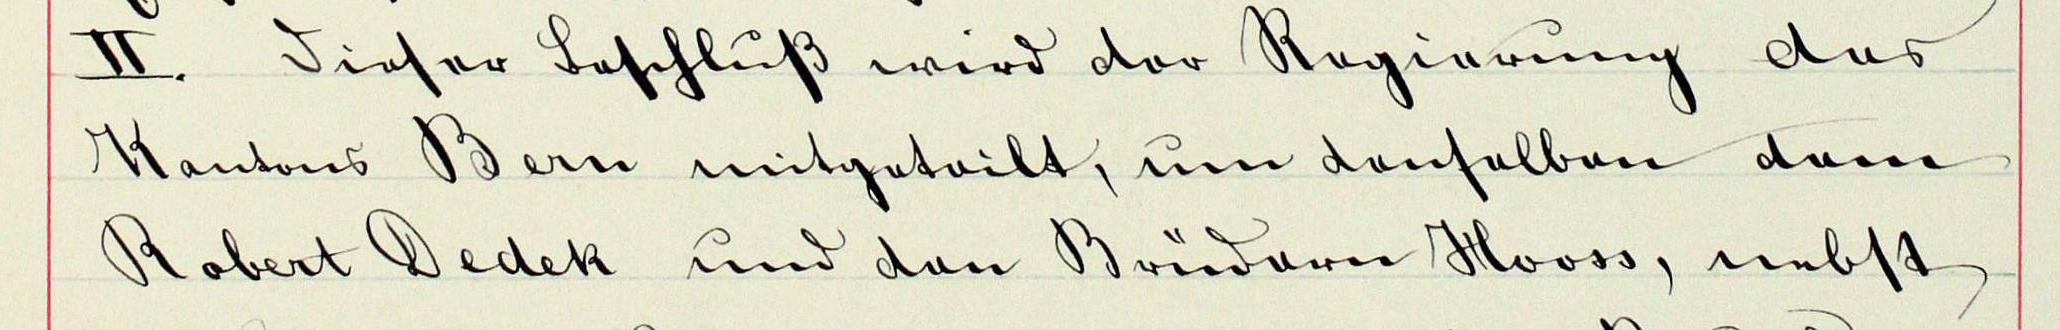 II. Dieser Beschluß wird der Regierung des
Kantons Bern mitgeteilt, um denselben dem
Robert Dedek und den Brüdern Mooss, nebst